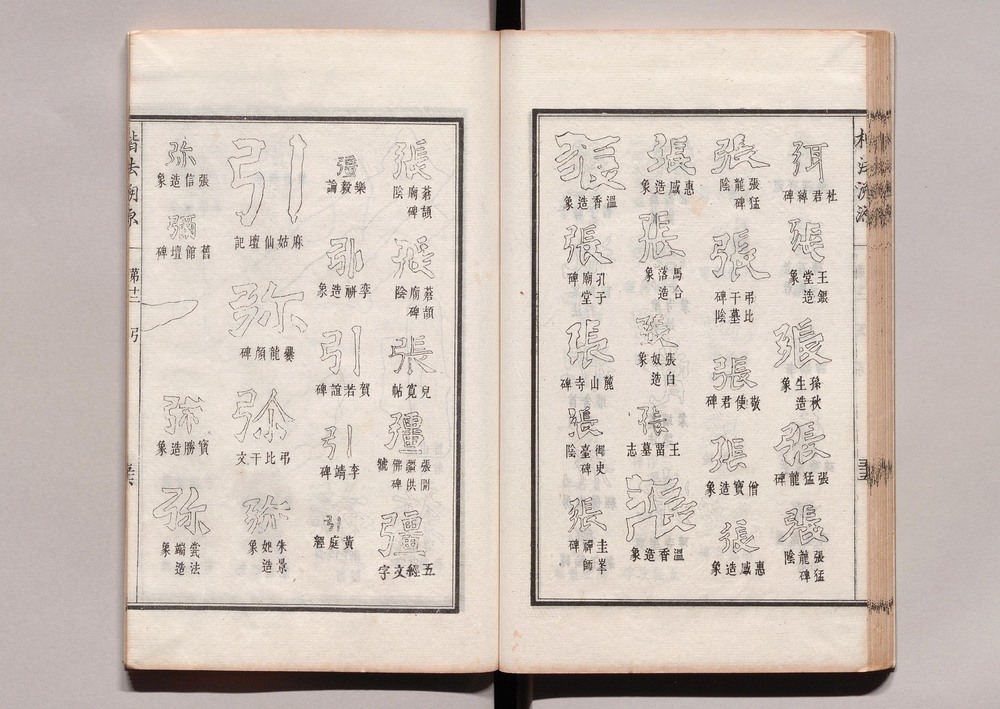 弭
杜君綽碑
張
王銀堂造象
張
孫秋生造象
張
張猛龍碑
張
張猛龍碑陰
張
張猛龍碑陰
張
弔比干墓碑陰
張
敬使君碑
張
僧寶造象
張
惠感造象
張
惠感造象
張
馬合落造象
張
張白奴造象
張
王畱墓志
張
溫香造象
張
溫香造象
張
孔子廟堂碑
張
麓山寺碑
張
御史臺碑陰
張
圭峯禪師碑
張
蒼頡廟碑陰
張
蒼頡廟碑陰
張
兒寬帖
彊
張開疆供佛碑
彊
五經文字
彊
樂毅論
引
李騈造象
引
賀若誼碑
引
李靖碑
引
黃庭經
引
麻姑仙壇記
弥
爨龍顏碑
弥
弔比干文
弥
朱景造象
弥
張信造象
彌
舊館壇碑
弥
寶勝造象
弥
端法造象
楷法溯源
第十二
弓